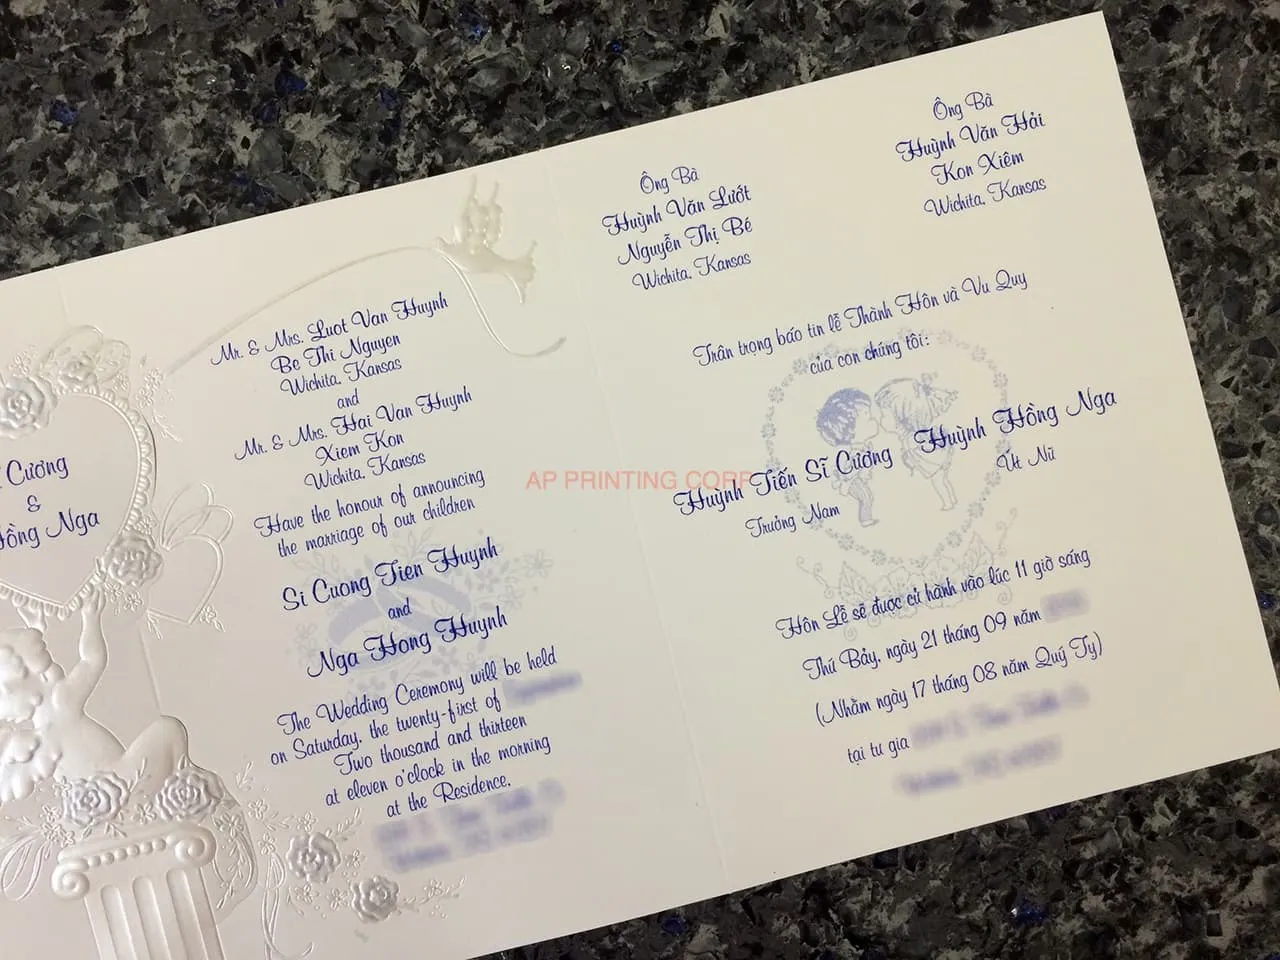 Cương
&
ồng Nga
Mr. & Mrs. Luot Van Huynh
Be Thi Nguyen
Wichita, Kansas
and
Mr. & Mrs. Hai Van Huynh
Xiem Kon
Wichita, Kansas
Have the honour of announcing
the marriage of our children
Si Cuong Tien Huynh
and
Nga Hong Huynh
The Wedding Ceremony will be held
on Saturday, the twenty-first of
Two thousand and thirteen
at eleven o'clock in the morning
at the Residence,
Ông Bà
Huỳnh Văn Lướt
Nguyễn Thị Bé
Wichita, Kansas
Ông Bà
Huỳnh Văn Hải
Kon Xiêm
Wichita, Kansas
Trân trọng báo tin lễ Thành Hôn và Vu Quy
của con chúng tôi:
Huỳnh Tiến Sĩ Cương
Trưởng Nam
Huỳnh Hồng Nga
Út Nữ
Hôn Lễ sẽ được cử hành vào lúc 11 giờ sáng
Thứ Bảy, ngày 21 tháng 09 năm
(Nhằm ngày 17 tháng 08 năm Quý Tỵ)
tại tư gia
AP PRINTING CORP